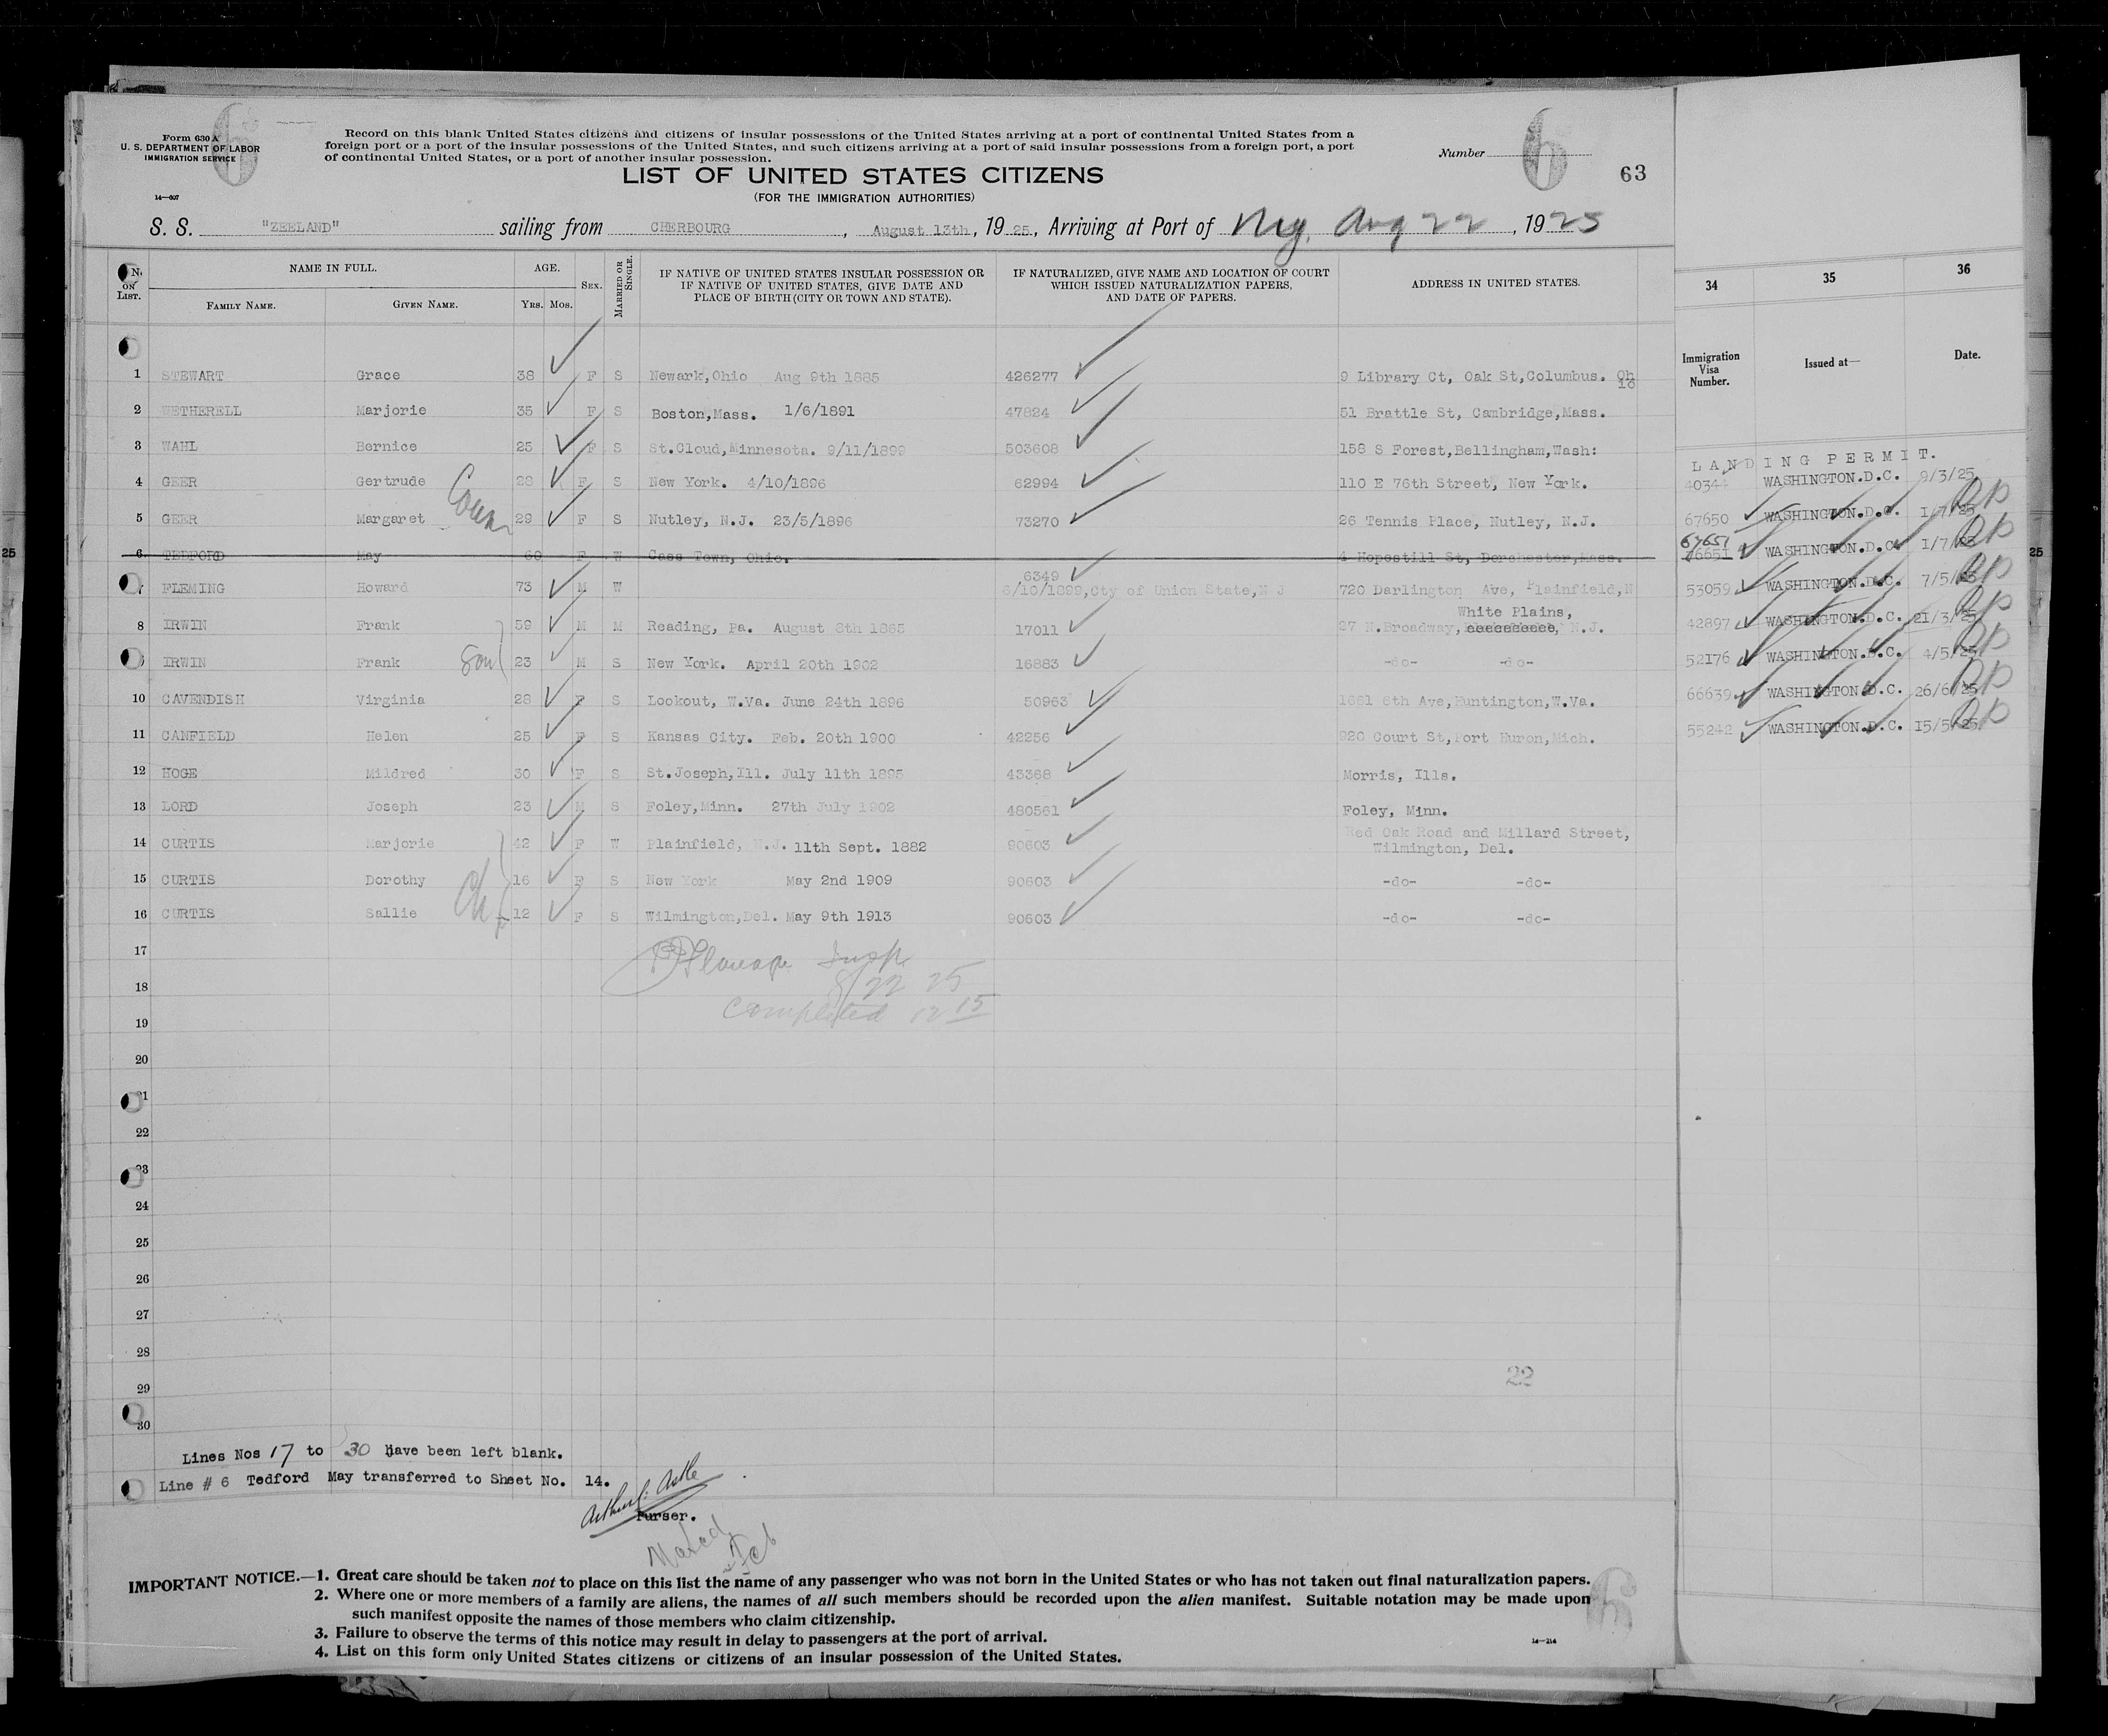 Form 630 A
U. S. DEPARTMENT OF LABOR
IMMIGRATION SERVICE
14—607
6
Record on this blank United States citizens and citizens of insular possessions of the United States arriving at a port of continental United States from a
foreign port or a port of the insular possessions of the United States, and such citizens arriving at a port of said insular possessions from a foreign port, a port
of continental United States, or a port of another insular possession.
Number 6
63
LIST OF UNITED STATES CITIZENS
(FOR THE IMMIGRATION AUTHORITIES)
S. S. "ZEELAND" sailing from CHERBOURG, August 13th, 19 25, Arriving at Port of Aug 22, 1925
No. ON LIST. NAME IN FULL. AGE. SEX. MARRIED OR SINGLE. IF NATIVE OF UNITED STATES INSULAR POSSESSION OR IF NATIVE OF UNITED STATES, GIVE DATE AND PLACE OF BIRTH (CITY OR TOWN AND STATE). IF NATURALIZED, GIVE NAME AND LOCATION OF COURT WHICH ISSUED NATURALIZATION PAPERS, AND DATE OF PAPERS. ADDRESS IN UNITED STATES.
FAMILY NAME. GIVEN NAME. YRS. MOS.
1 STEWART Grace 38 F S Newark,Ohio Aug 9th 1885 426277 9 Library Ct, Oak St,Columbus. Oh io
2 WETHERELL Marjorie 35 F S Boston,Mass. 1/6/1891 47824 51 Brattle St, Cambridge,Mass.
3 WAHL Bernice 25 F S St.Cloud,Minnesota. 9/11/1899 503608 158 S Forest,Bellingham,Wash:
4 GEER Gertrude 28 F S New York. 4/10/1896 62994 110 E 76th Street, New York.
Cousin
5 GEER Margaret 29 F S Nutley, N.J. 23/5/1896 73270 26 Tennis Place, Nutley, N.J.
6 TEDFORD May 60 F W Cass Town, Ohio. 4 Hopestill St, Dorchester,Mass.
7 FLEMING Howard 73 M W 6349 6/10/1899,Cty of Union State,N J 720 Darlington Ave, Plainfield,N
8 IRWIN Frank 59 M M Reading, Pa. August 8th 1865 17011 White Plains, 27 N.Broadway, N.J.
9 IRWIN Frank Son 23 M S New York. April 20th 1902 16883 -do- -do-
10 CAVENDISH Virginia 28 F S Lookout, W.Va. June 24th 1896 50963 1661 6th Ave,Huntington,W.Va.
11 CANFIELD Helen 25 F S Kansas City. Feb. 20th 1900 42256 920 Court St,Port Huron,Mich.
12 HOGE Mildred 30 F S St.Joseph,Ill. July 11th 1895 43368 Morris, Ills.
13 LORD Joseph 23 M S Foley,Minn. 27th July 1902 480561 Foley, Minn.
14 CURTIS Marjorie 42 F W Plainfield, N.J. 11th Sept. 1882 90603 Red Oak Road and Millard Street, Wilmington, Del.
15 CURTIS Dorothy 16 F S New York May 2nd 1909 90603 -do- -do-
Ch
16 CURTIS Sallie 12 F S Wilmington,Del. May 9th 1913 90603 -do- -do-
17
Insp
18
8/22 25
19
Completed 12 15
20
21
22
23
24
25
26
27
28
29
22
30
Lines Nos 17 to 30 Have been left blank.
Line # 6 Tedford May transferred to Sheet No. 14.
Purser.
IMPORTANT NOTICE.—1. Great care should be taken not to place on this list the name of any passenger who was not born in the United States or who has not taken out final naturalization papers.
2. Where one or more members of a family are aliens, the names of all such members should be recorded upon the alien manifest. Suitable notation may be made upon
such manifest opposite the names of those members who claim citizenship.
3. Failure to observe the terms of this notice may result in delay to passengers at the port of arrival.
4. List on this form only United States citizens or citizens of an insular possession of the United States.
14—214
6
34 35 36
Immigration Visa Number. Issued at— Date.
LANDING PERMIT.
40344 WASHINGTON.D.C. 9/3/25
67650 WASHINGTON.D.C. 1/7/25
67651
66651 WASHINGTON.D.C. 1/7/25
53059 WASHINGTON.D.C. 7/5/25
42897 WASHINGTON.D.C. 21/3/25
52176 WASHINGTON.D.C. 4/5/25
66639 WASHINGTON.D.C. 26/6/25
55242 WASHINGTON.D.C. 15/5/25
25
25